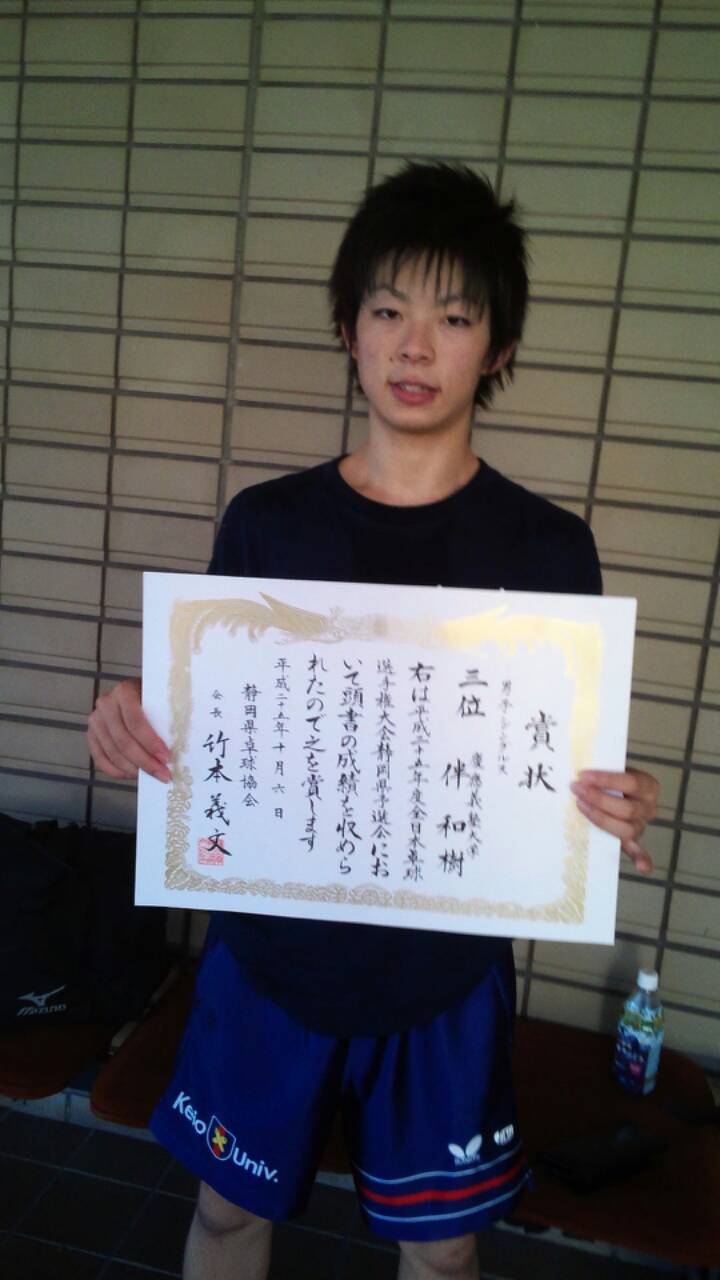 賞状
男子シングルス
三位 慶應義塾大学
伴 和樹
右は平成二十五年度全日本卓球
選手権大会静岡県予選会にお
いて頭書の成績を収めら
れたので之を賞します
平成二十五年十月六日
静岡県卓球協会
会長 竹本義文
MIZUNO
Keio Univ.